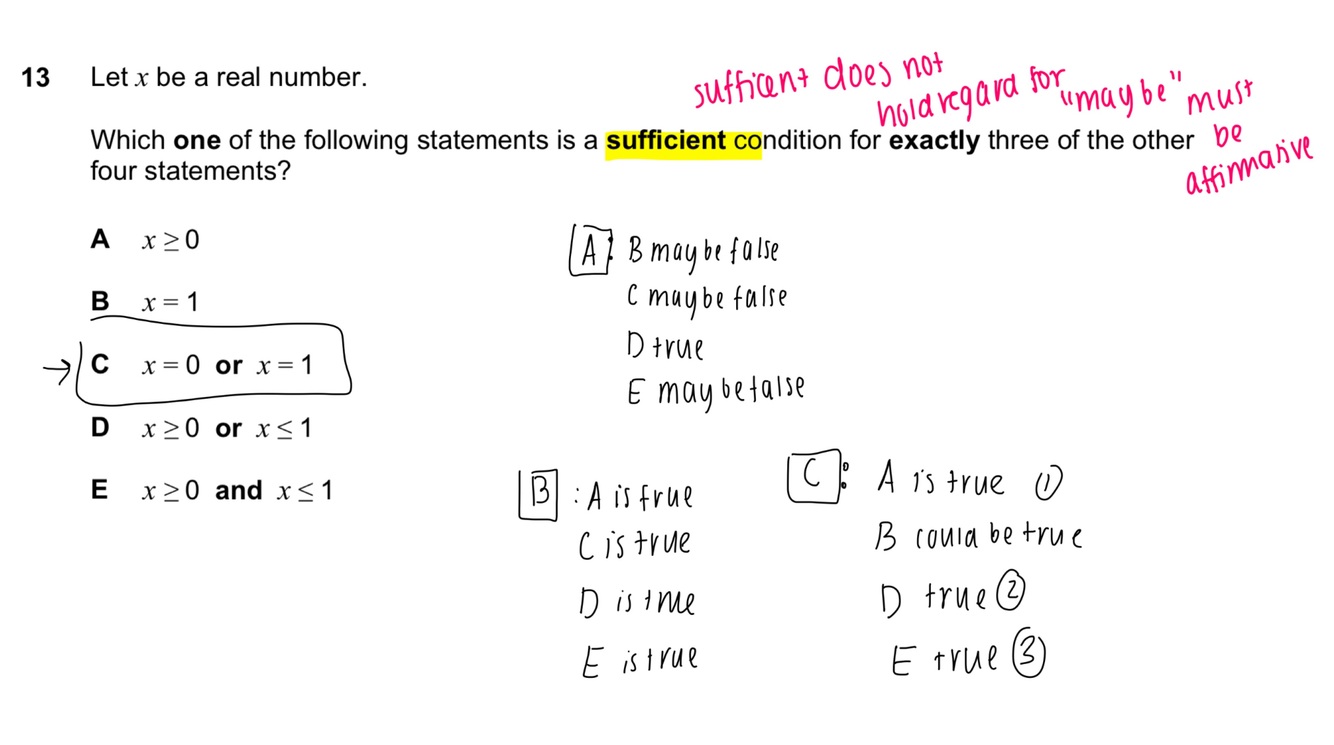 13 Let x be a real number.
sufficent does not
hold regard for "maybe" must
be
affirmative
Which one of the following statements is a sufficient condition for exactly three of the other
four statements?
A x ≥ 0
B x = 1
→ C x = 0 or x = 1
D x ≥ 0 or x ≤ 1
E x ≥ 0 and x ≤ 1
A: B maybe false
C maybe false
D true
E maybe false
B : A is true
C is true
D is true
E is true
C: A is true ①
B could be true
D true ②
E true ③